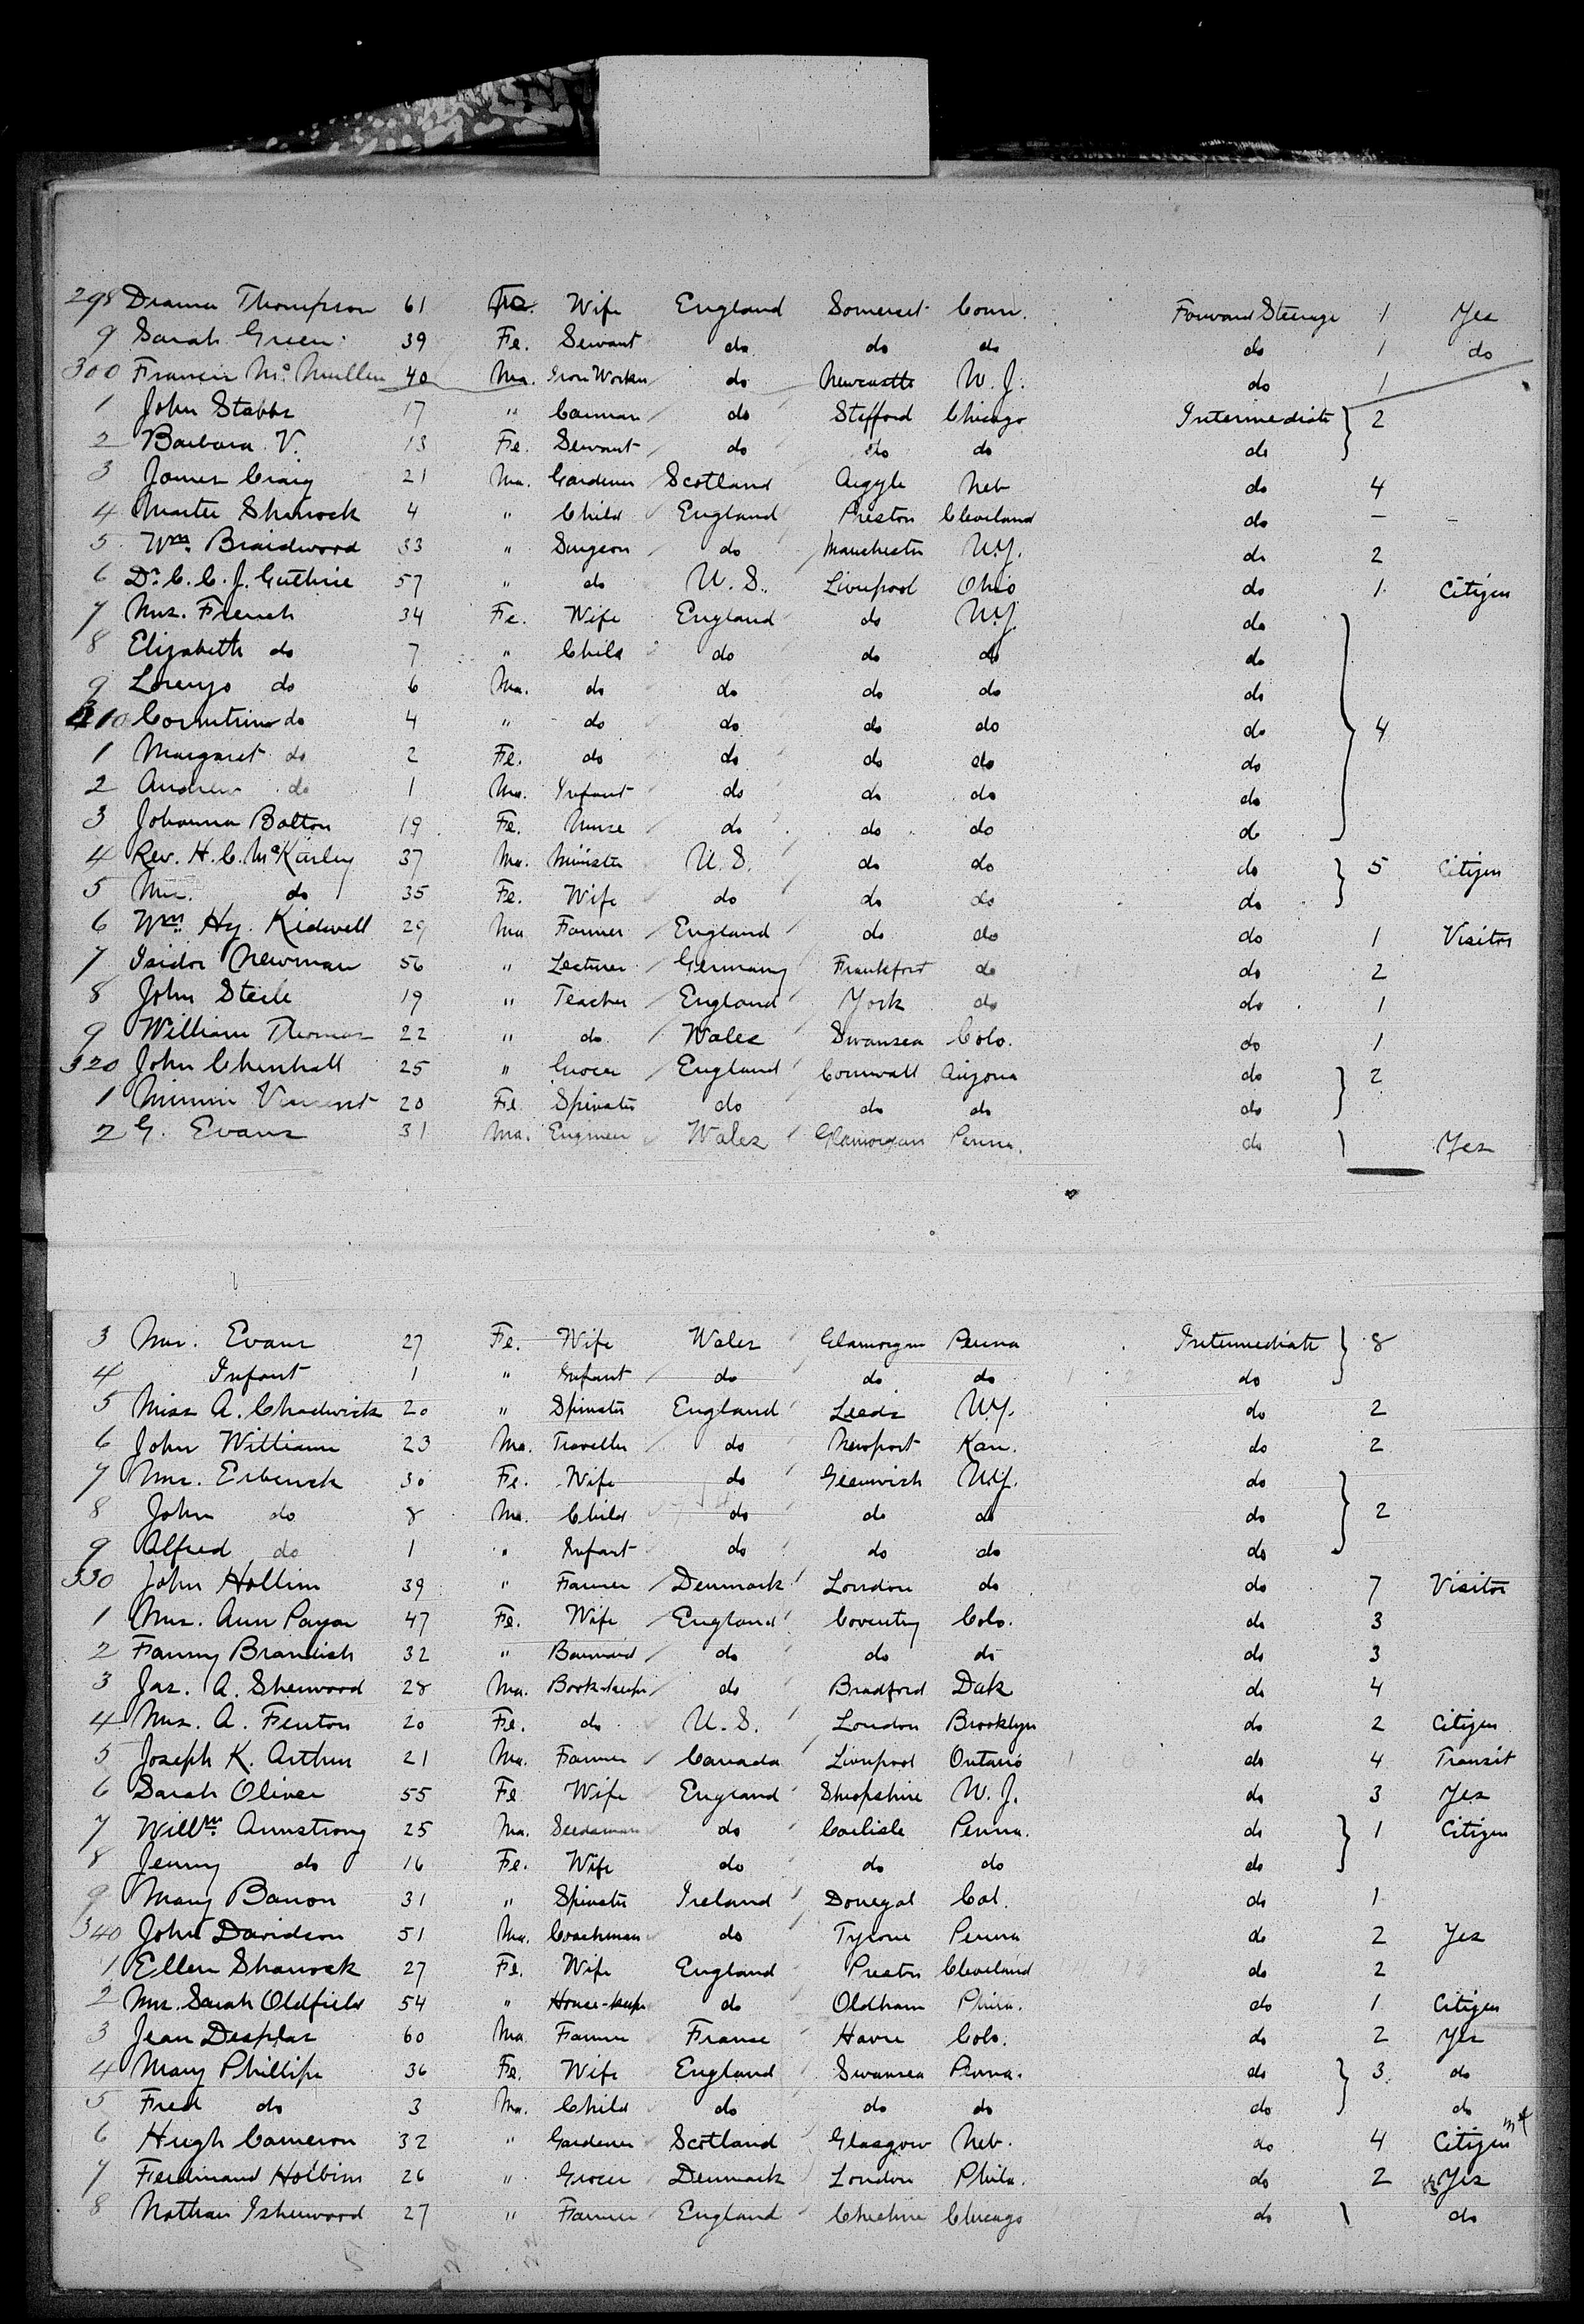 298 Thompson 61 Fe. Wife England Somerset Conn. Forward Steerage 1 Yes
9 Sarah Green 39 Fe. Servant do do do do 1 do
300 Francis McMullen 40 Ma. Iron Worker do Newcastle N. J. do 1
1 John Stabbs 17 " Carman do Stafford Chicago Intermediate 2
2 Barbara V. 13 Fe. Servant do do do do
3 James Craig 21 Ma. Gardener Scotland Argyle Neb do 4
4 Master Sharrock 4 " Child England Preston Cleveland do – -
5 Wm. Braidwood 33 " Surgeon do Manchester N.Y. do 2
6 Dr. C. C. J. Guthrie 57 " do U. S. Liverpool Ohio do 1 Citizen
7 Mrs. French 34 Fe. Wife England do N.Y. do
8 Elizabeth do 7 " Child do do do do
9 Lorenzo do 6 Ma. do do do do do
310 do 4 " do do do do do 4
1 Margaret do 2 Fe. do do do do do
2 Andrew do 1 Ma. Infant do do do do
3 Johanna Bolton 19 Fe. Nurse do do do do
4 Rev. H. C. 37 Ma. Minister U. S. do do do 5 Citizen
5 Mrs. do 35 Fe. Wife do do do do
6 Wm. Hy. Kidwell 29 Ma Farmer England do do do 1 Visitor
7 Isidor Newman 56 " Lecturer Germany Frankfort do do 2
8 John Steele 19 " Teacher England York do do 1
9 William Thomas 22 " do Wales Swansea Colo. do 1
320 John Chenhall 25 " Grocer England Cornwall Arizona do 2
1 Minnie Vincent 20 Fe Spinster do do do do
2 G. Evans 31 Ma. Engineer Wales Glamorgan Penna. do Yes
3 Mrs. Evans 27 Fe. Wife Wales Glamorgan Penna Intermediate 8
4 Infant 1 " Infant do do do do
5 Miss A. Chadwick 20 " Spinster England Leeds N.Y. do 2
6 John Williams 23 Ma. Traveller do Newport Kan. do 2
7 Mrs. 30 Fe. Wife do Greenwich N.Y. do
8 John do 8 Ma. Child do do do do 2
9 Alfred do 1 " Infant do do do do
330 John Hollim 39 " Farmer Denmark London do do 7 Visitor
1 Mrs. Ann 47 Fe. Wife England Coventry Colo. do 3
2 Fanny Brandish 32 " Barmaid do do do do 3
3 Jas. A. Sherwood 28 Ma. Book-keeper do Bradford Dak do 4
4 Mrs. A. Fenton 20 Fe. do U. S. London Brooklyn do 2 Citizen
5 Joseph K. Arthur 21 Ma. Farmer Canada Liverpool Ontario do 4 Transit
6 Sarah Oliver 55 Fe Wife England Shropshire N. J. do 3 Yes
7 Willm. Armstrong 25 Ma. Seedsman do Carlisle Penna. do 1 Citizen
8 Jenny do 16 Fe. Wife do do do do
9 Mary Barron 31 " Spinster Ireland Donegal Cal. do 1
340 John Davidson 51 Ma. Coachman do Tyrone Penna do 2 Yes
1 Ellen Sharrock 27 Fe. Wife England Preston Cleveland do 2
2 Mrs. Sarah Oldfield 54 " House-keeper do Oldham Phila. do 1 Citizen
3 Jean Desplas 60 Ma. Farmer France Havre Colo. do 2 Yes
4 Mary Phillips 36 Fe. Wife England Swansea Penna. do 3 do
5 Fred do 3 Ma. Child do do do do do
6 Hugh Cameron 32 " Gardener Scotland Glasgow Neb. do 4 Citizen
7 Ferdinand Holbim 26 " Grocer Denmark London Phila. do 2 Yes
8 Nathan Isherwood 27 " Farmer England Cheshire Chicago do do